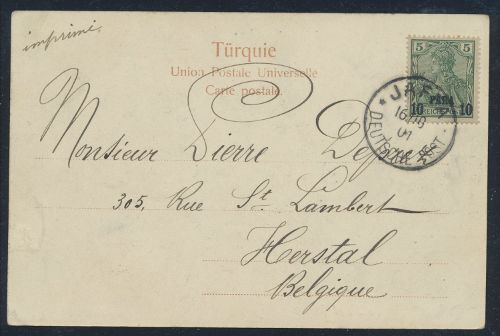 imprimé.
Türquie
Union Postale Universelle
Carte postale.
5 5
10 PARA 10
REICHSPOST
JAFFA
16/10
01
DEUTSCHE POST
Monsieur Pierre
305, Rue St. Lambert
Herstal
Belgique